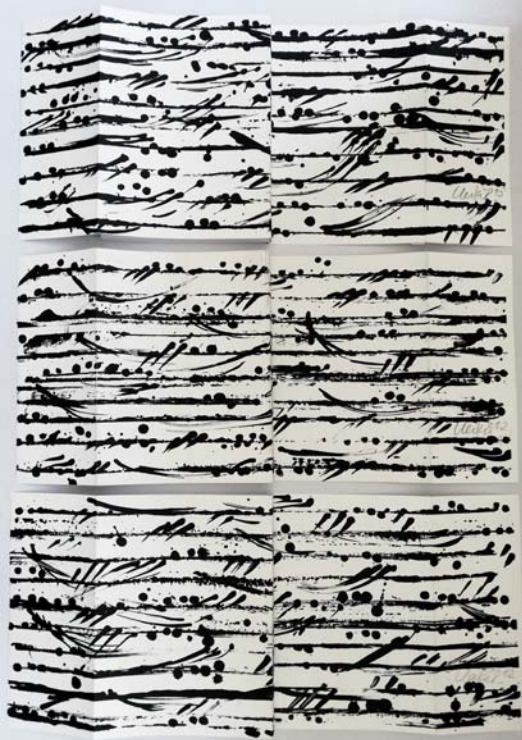 Uecker
Uecker 92
Uecker 92